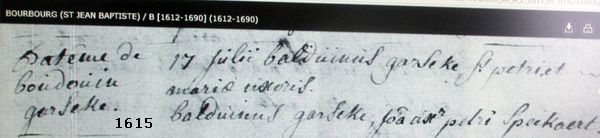 BOURBOURG (ST JEAN BAPTISTE) / B [1612-1690] (1612-1690)
Batême de 17 julii balduinus garseke, fs petri et
boudouin mariæ uxoris.
garseke. balduinus garseke, petri speekaert
1615